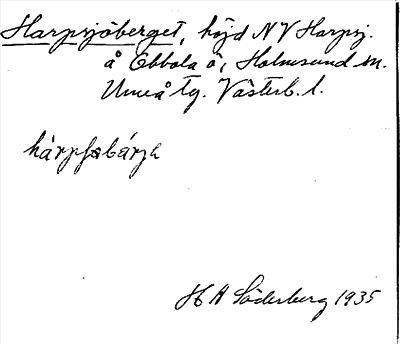 Harpsjöberget, höjd NV Harpsj.
å Obbola ö, Holmsund sn.
Umeå tg. Västerb. l.
H A Söderberg 1935